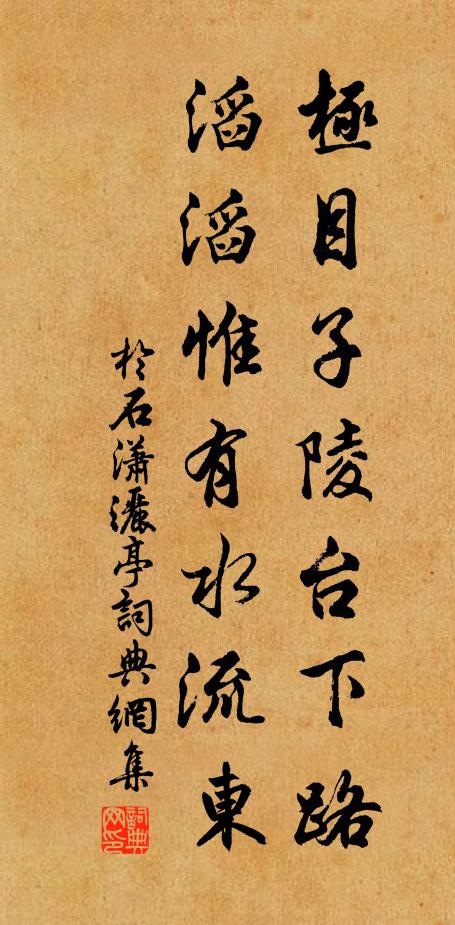 極目子陵台下路
滔滔惟有水流東
於石瀟灑亭詞典網集
詞典网印